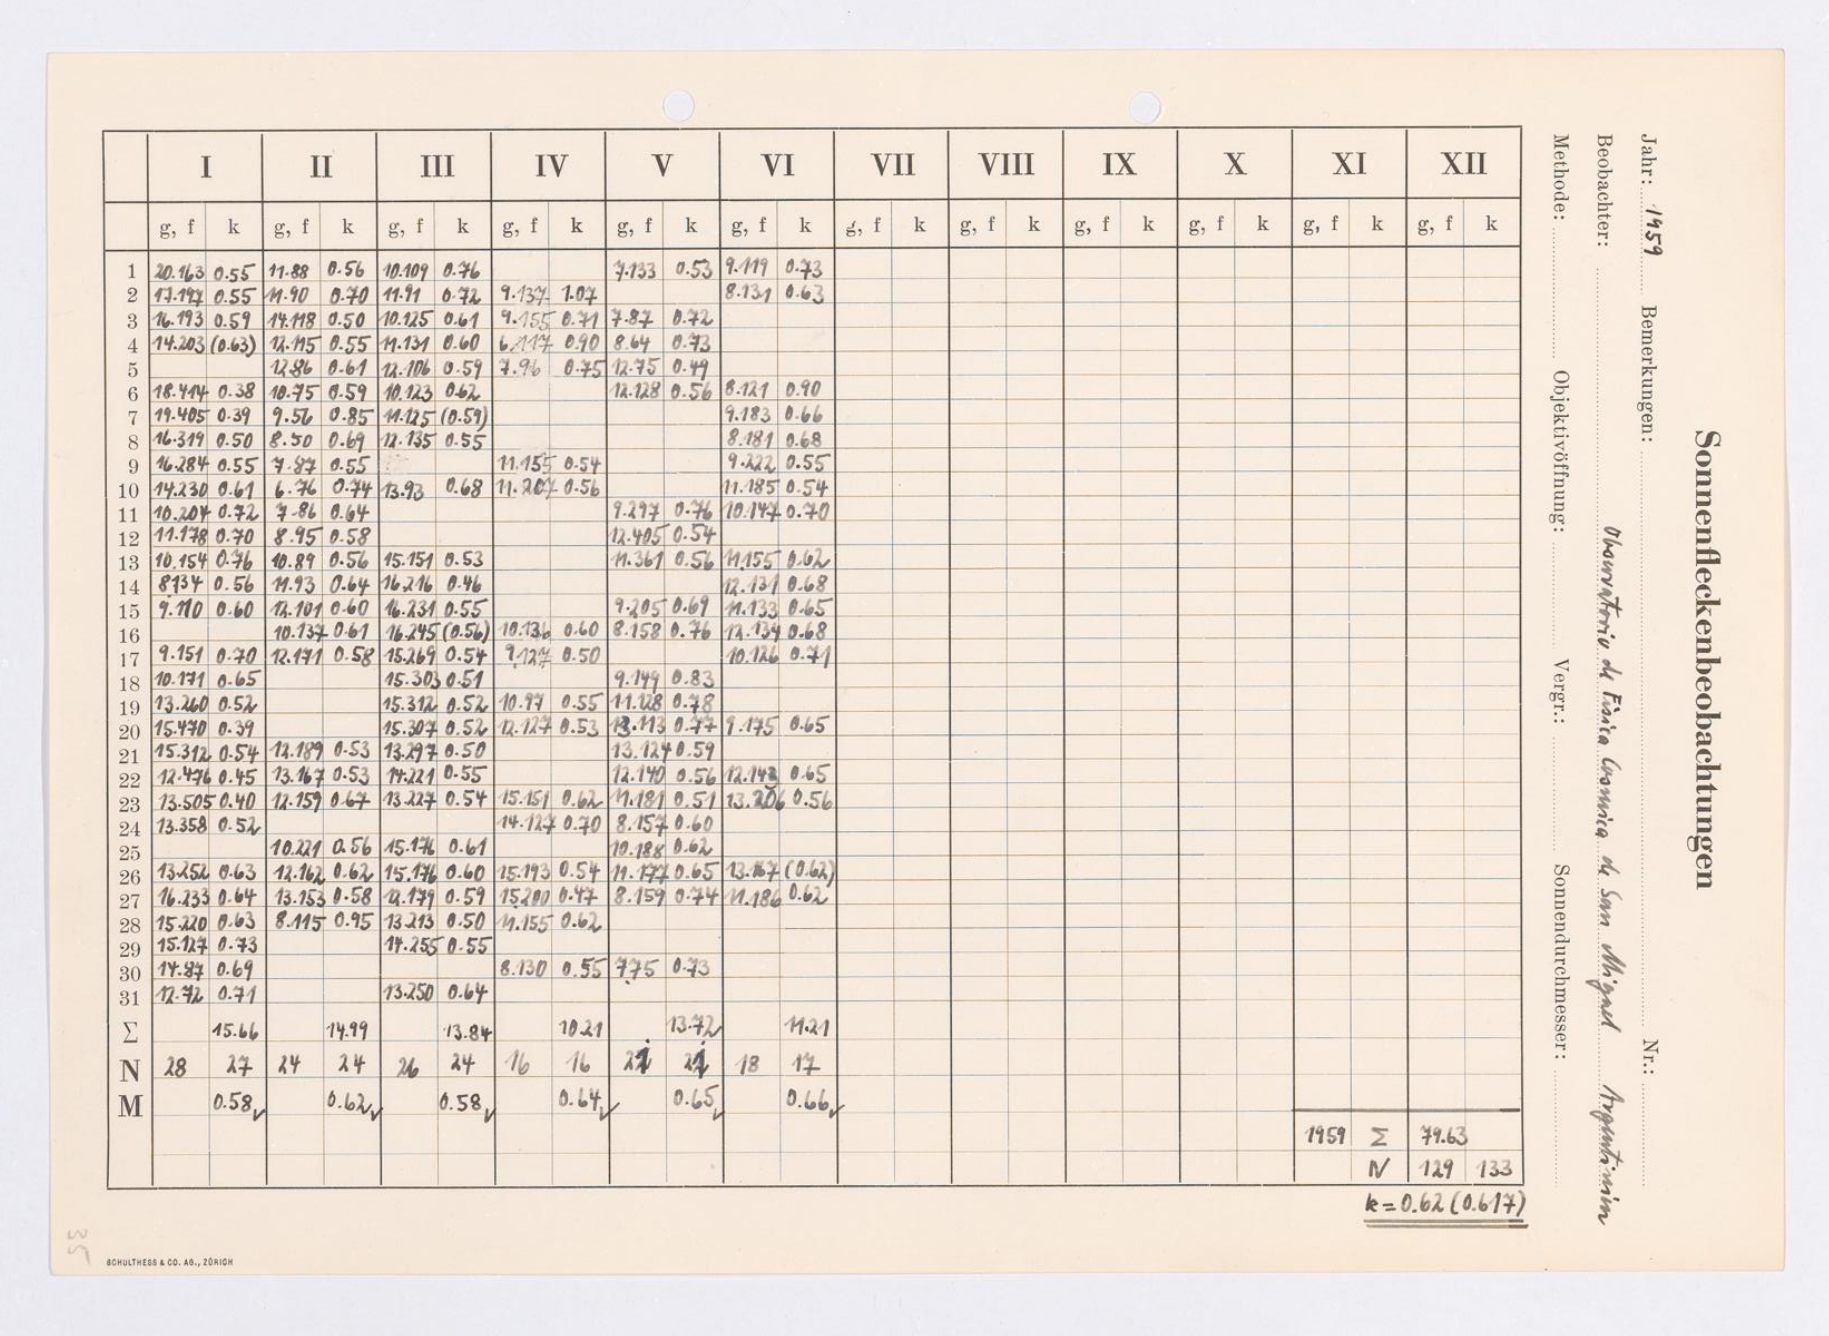 Sonnenfleckenbeobachtungen
Jahr: 1959 Bemerkungen: Nr.:
Beobachter: Observatorio de Física Cosmica de San Miguel Argentinien
Methode: Objektivöffnung: Vergr.: Sonnendurchmesser:
I II III IV V VI VII VIII IX X XI XII
g, f k g, f k g, f k g, f k g, f k g, f k g, f k g, f k g, f k g, f k g, f k g, f k
1 20.163 0.55 11.88 0.56 10.109 0.76 7.133 0.53 9.119 0.73
2 17.197 0.55 11.90 0.70 11.91 0.72 9.137 1.07 8.131 0.63
3 16.193 0.59 14.118 0.50 10.125 0.61 9.155 0.71 7.87 0.72
4 14.203 (0.63) 12.115 0.55 11.131 0.60 6.117 0.90 8.64 0.73
5 12.86 0.61 12.106 0.59 7.96 0.75 12.75 0.49
6 18.414 0.38 10.75 0.59 10.123 0.62 12.128 0.56 8.121 0.90
7 19.405 0.39 9.56 0.85 11.125 (0.59) 9.183 0.66
8 16.319 0.50 8.50 0.69 12.135 0.55 8.181 0.68
9 16.284 0.55 7.87 0.55 11.155 0.54 9.222 0.55
10 14.230 0.61 6.76 0.74 13.93 0.68 11.207 0.56 11.185 0.54
11 10.204 0.72 7.86 0.64 9.297 0.76 10.147 0.70
12 11.178 0.70 8.95 0.58 12.405 0.54
13 10.154 0.76 10.89 0.56 15.151 0.53 11.361 0.56 11.155 0.62
14 8.134 0.56 11.93 0.64 16.216 0.46 12.131 0.68
15 9.110 0.60 12.101 0.60 16.231 0.55 9.205 0.69 11.133 0.65
16 10.137 0.61 16.245 (0.56) 10.136 0.60 8.158 0.76 12.134 0.68
17 9.151 0.70 12.171 0.58 15.269 0.54 9.127 0.50 10.126 0.71
18 10.171 0.65 15.303 0.51 9.149 0.83
19 13.260 0.52 15.312 0.52 10.97 0.55 11.128 0.78
20 15.470 0.39 15.307 0.52 12.127 0.53 13.113 0.77 9.175 0.65
21 15.312 0.54 12.189 0.53 13.297 0.50 13.124 0.59
22 12.476 0.45 13.167 0.53 14.221 0.55 12.140 0.56 12.142 0.65
23 13.505 0.40 12.159 0.67 13.227 0.54 15.151 0.62 11.181 0.51 13.206 0.56
24 13.358 0.52 14.127 0.70 8.157 0.60
25 10.221 0.56 15.176 0.61 10.188 0.62
26 13.252 0.63 12.162 0.62 15.176 0.60 15.193 0.54 11.177 0.65 13.167 (0.62)
27 16.233 0.64 13.153 0.58 12.179 0.59 15.200 0.47 8.159 0.74 11.186 0.62
28 15.220 0.63 8.115 0.95 13.213 0.50 11.155 0.62
29 15.127 0.73 14.255 0.55
30 14.87 0.69 8.130 0.55 7.75 0.73
31 12.72 0.71 13.250 0.64
Σ 15.66 14.99 13.84 10.21 13.72 11.21
N 28 27 24 24 26 24 16 16 21 21 18 17
M 0.58✓ 0.62✓ 0.58✓ 0.64✓ 0.65✓ 0.66✓
1959 Σ 79.63
N 129 133
k = 0.62 (0.617)
35
SCHULTHESS & CO. AG., ZÜRICH